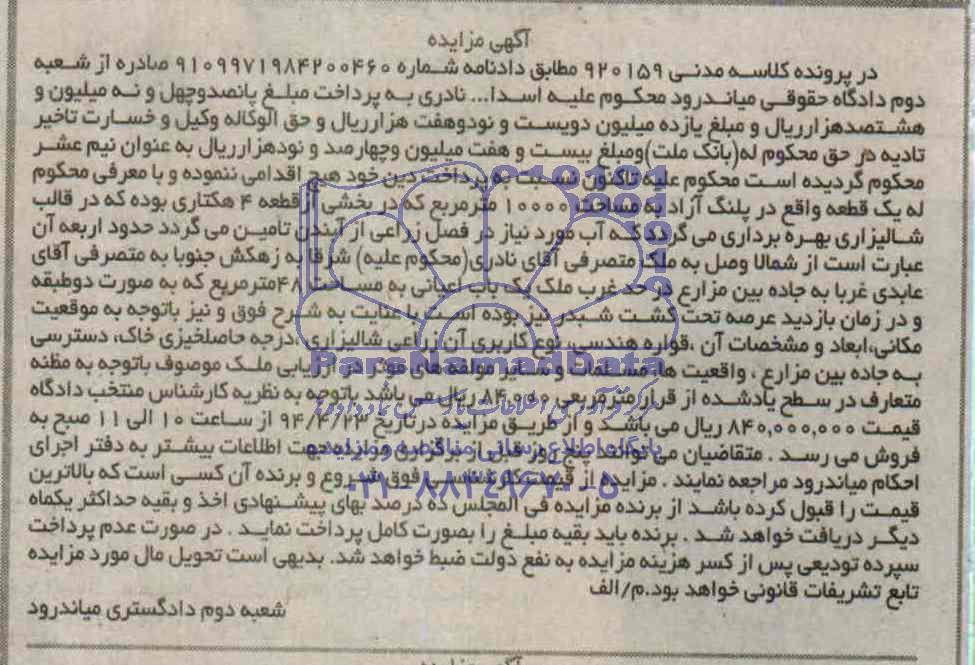 آگهی مزایده
در پرونده کلاسه مدنی ۹۲۰۱۵۹ مطابق دادنامه شماره ۹۱۰۹۹۷۱۹۸۴۲۰۰۴۶۰ صادره از شعبه
دوم دادگاه حقوقی میاندرود محکوم علیه اسدا... نادری به پرداخت مبلغ پانصدوچهل و نه میلیون و
هشتصدهزارریال و مبلغ یازده میلیون دویست و نودوهفت هزارریال و حق الوکاله وکیل و خسارت تاخیر
تادیه در حق محکوم له(بانک ملت)ومبلغ بیست و هفت میلیون وچهارصد و نودهزارریال به عنوان نیم عشر
محکوم گردیده است محکوم علیه تاکنون نسبت به پرداخت دین خود هیچ اقدامی ننموده و با معرفی محکوم
له یک قطعه واقع در پلنگ آزاد به مساحت ۱۰۰۰۰ مترمربع که در بخشی ازقطعه ۴ هکتاری بوده که در قالب
شالیزاری بهره برداری می گردد که آب مورد نیاز در فصل زراعی از آببندن تامین می گردد حدود اربعه آن
عبارت است از شمالا وصل به ملک متصرفی آقای نادری(محکوم علیه) شرقا به زهکش جنوبا به متصرفی آقای
عابدی غربا به جاده بین مزارع در حد غرب ملک یک باب اعیانی به مساحت ۴۸مترمربع که به صورت دوطبقه
و در زمان بازدید عرصه تحت کشت شبدر نیز بوده است با عنایت به شرح فوق و نیز باتوجه به موقعیت
مکانی،ابعاد و مشخصات آن ،قواره هندسی، نوع کاربری آن زراعی شالیزاری ،درجه حاصلخیزی خاک، دسترسی
به جاده بین مزارع ، واقعیت ها، مسلمات و سایر مولفه های موثر در ارزیابی ملک موصوف باتوجه به مظنه
متعارف در سطح یادشده از قرار مترمربعی ۸۴۰۰۰ ریال می باشد باتوجه به نظریه کارشناس منتخب دادگاه
قیمت ۸۴۰,۰۰۰,۰۰۰ ریال می باشد و از طریق مزایده درتاریخ ۹۴/۴/۲۳ از ساعت ۱۰ الی ۱۱ صبح به
فروش می رسد . متقاضیان می توانند پنج روز قبل از برگزاری مزایده جهت اطلاعات بیشتر به دفتر اجرای
احکام میاندرود مراجعه نمایند . مزایده از قیمت کارشناسی فوق شروع و برنده آن کسی است که بالاترین
قیمت را قبول کرده باشد از برنده مزایده فی المجلس ده درصد بهای پیشنهادی اخذ و بقیه حداکثر یکماه
دیگر دریافت خواهد شد . برنده باید بقیه مبلغ را بصورت کامل پرداخت نماید . در صورت عدم پرداخت
سپرده تودیعی پس از کسر هزینه مزایده به نفع دولت ضبط خواهد شد. بدیهی است تحویل مال مورد مزایده
تابع تشریفات قانونی خواهد بود.م/الف
شعبه دوم دادگستری میاندرود
ParsNamadData
پایگاه اطلاع رسانی مناقصه و مزایده